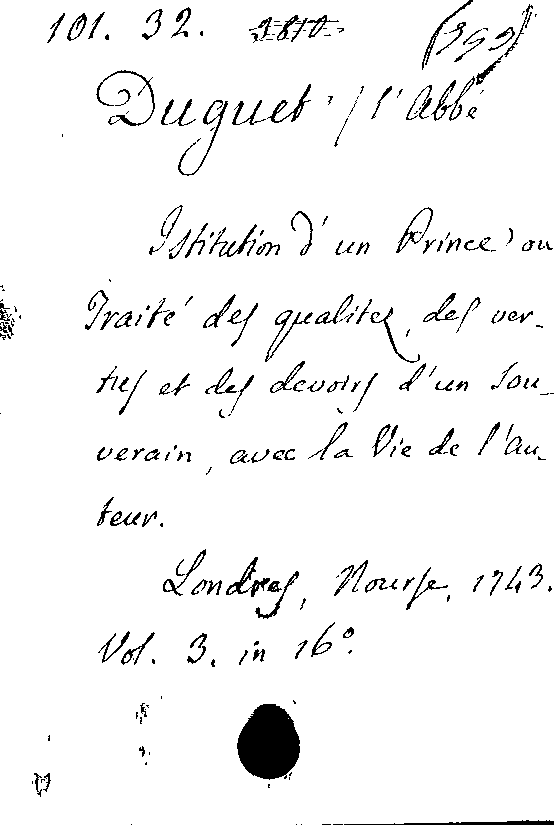 101. 32. 3810
Duguet / l'Abbé
Istitution d'un Prince, ou
Traité des qualitez, des ver-
tus et des devoirs d'un Sou-
verain, avec la Vie de l'Au-
teur.
Londres, Nourse, 1743.
Vol. 3. in 16°.